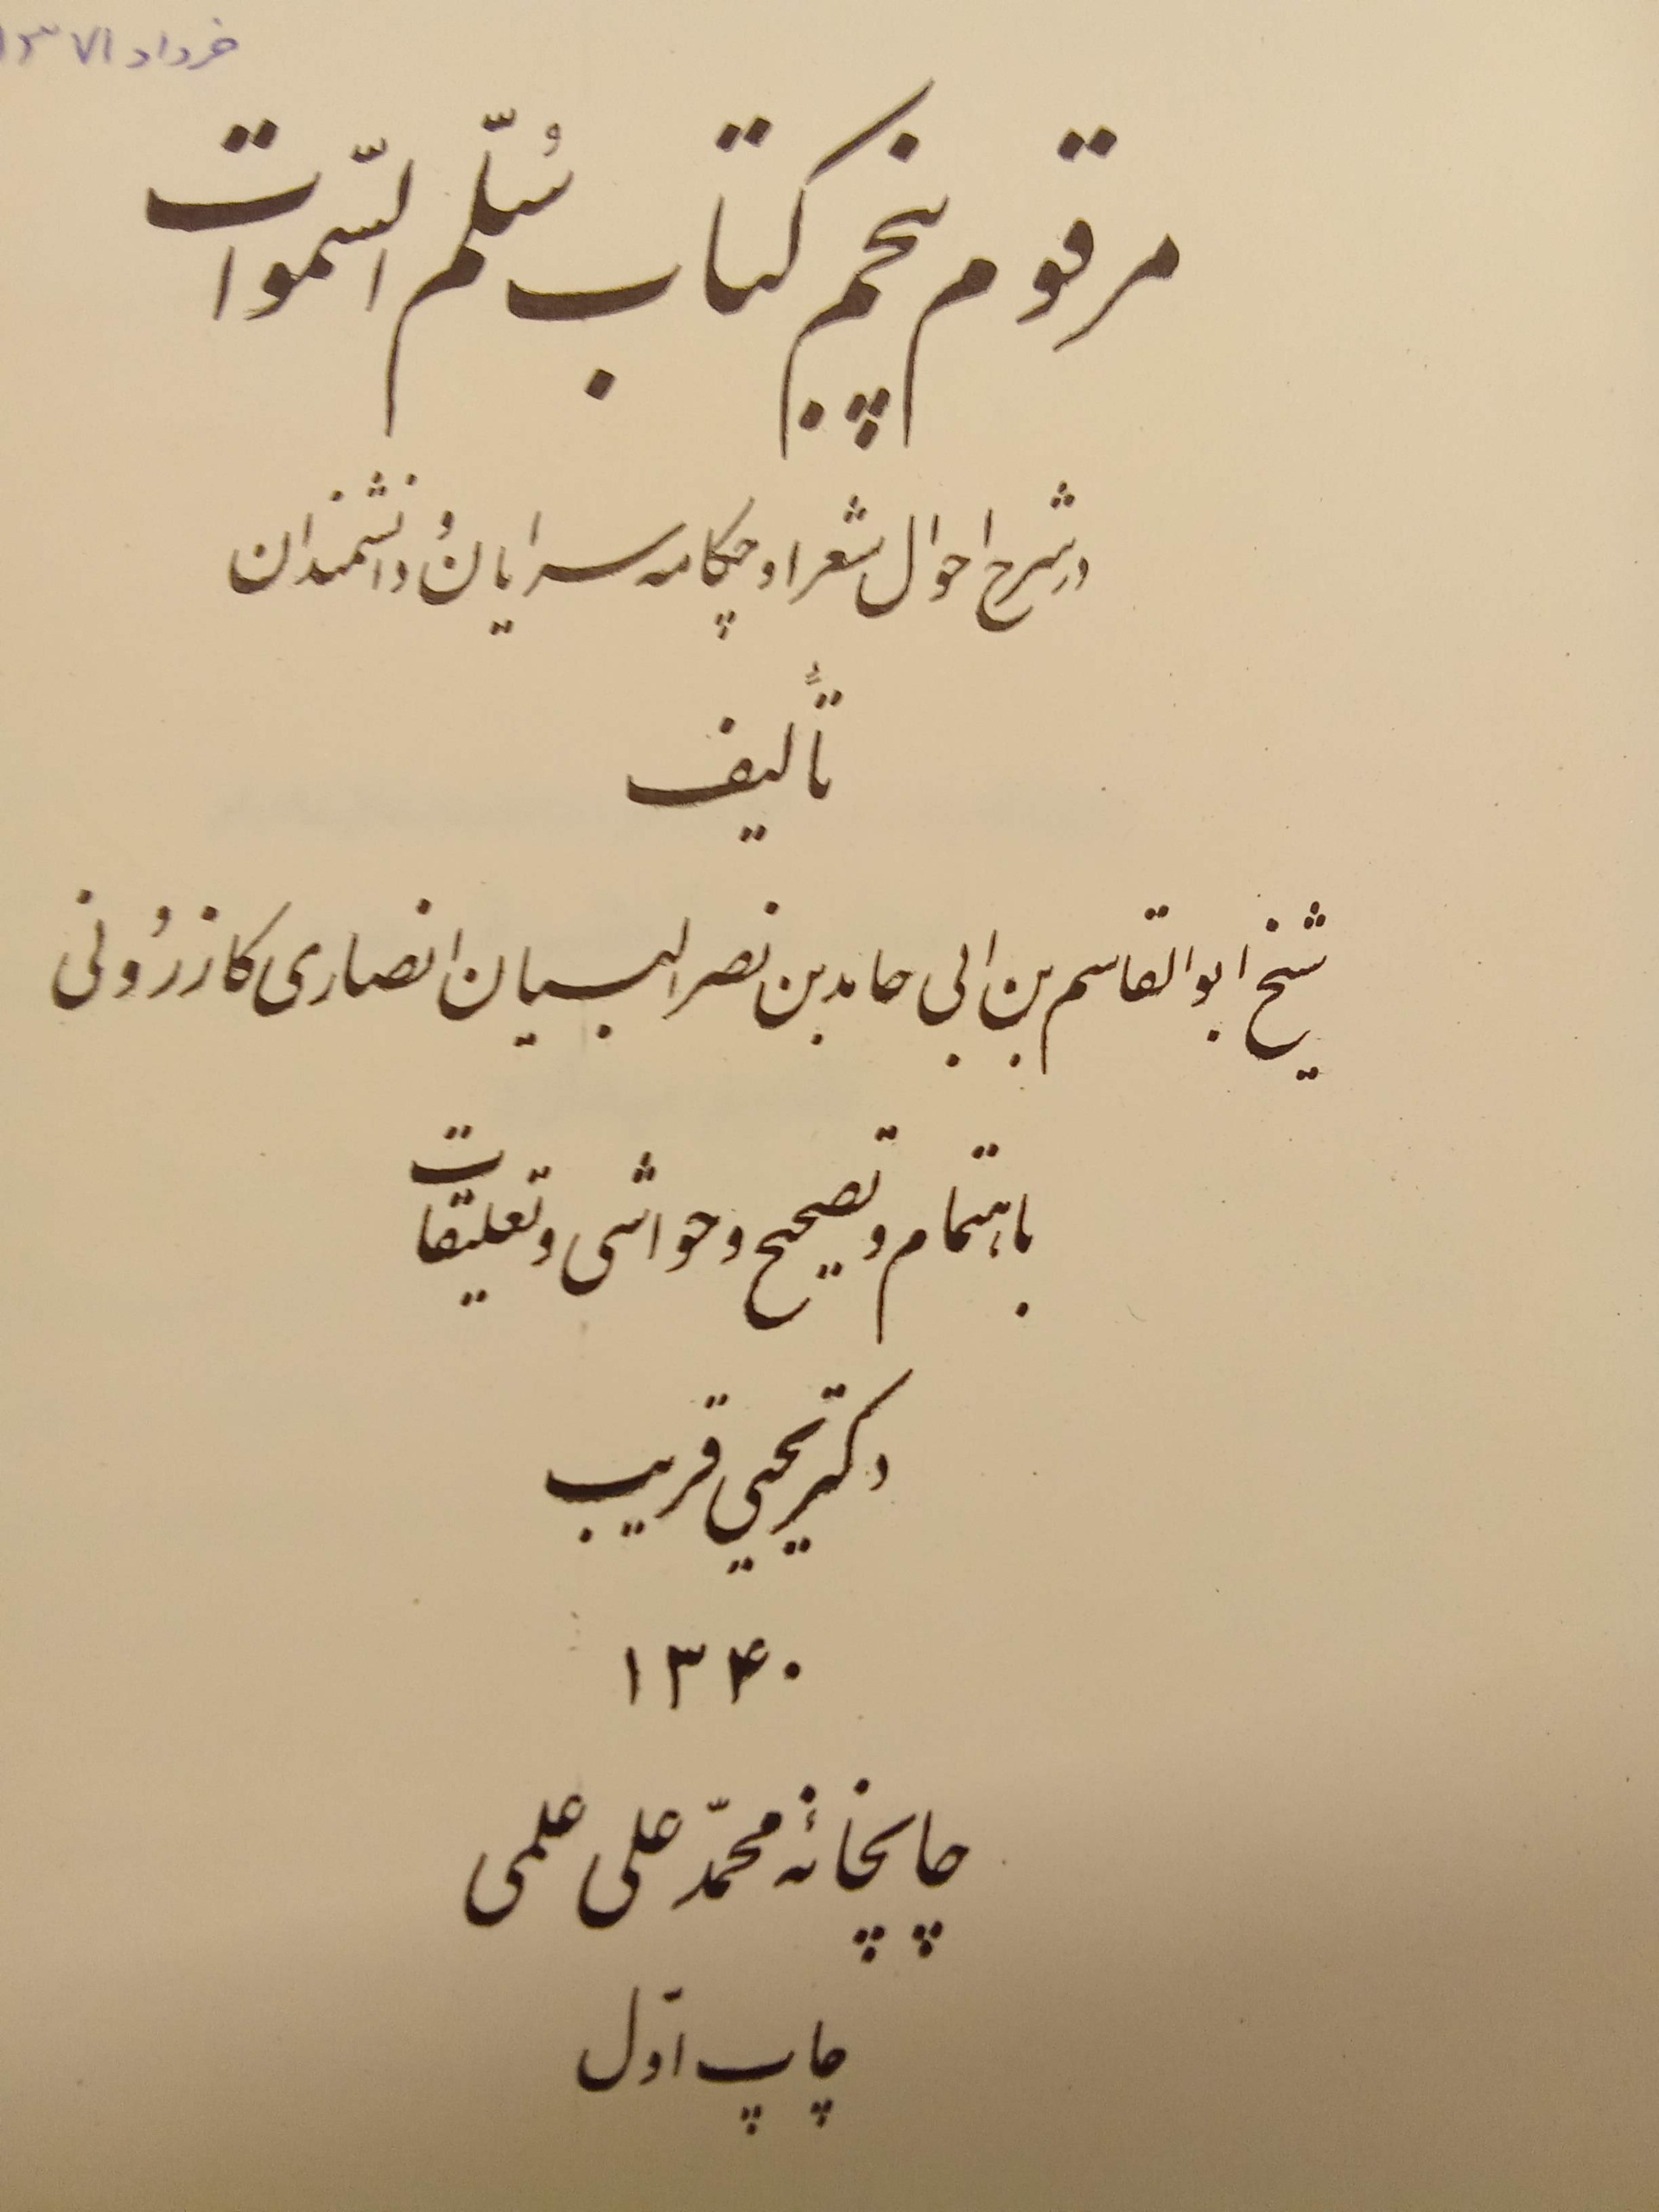 خرداد ۱۳۷۱
مرقوم پنجم کتاب سُلّم السّموات
در شرح احوال شعرا و چکامه سرایان و دانشمندان
تألیف
شیخ ابوالقاسم بن ابی حامد بن نصر البیان انصاری کازرُونی
باهتمام و تصحیح و حواشی و تعلیقات
دکتر یحیی قریب
۱۳۴۰
چاپخانهٔ محمّد علی علمی
چاپ اوّل